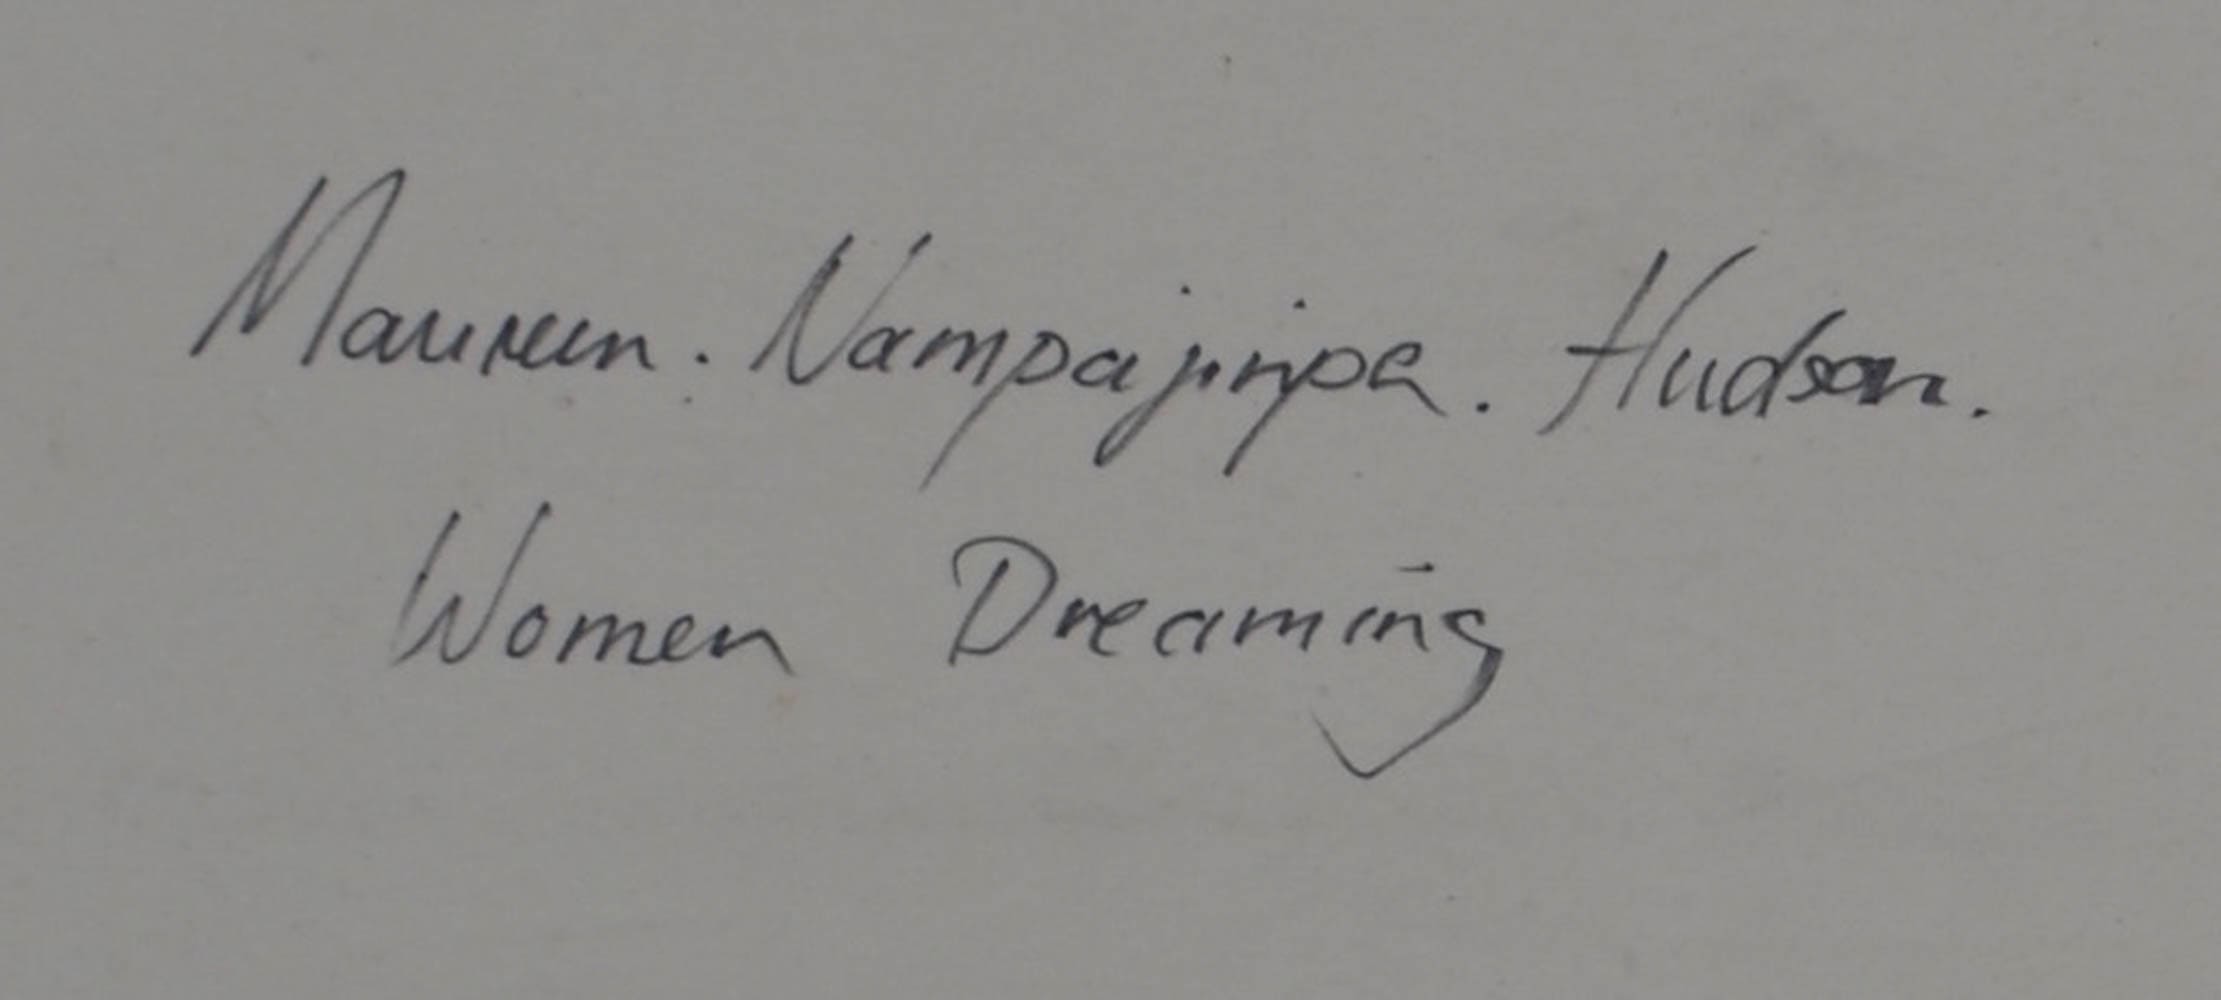 Maureen. Nampajinpa. Hudson.
Women Dreaming